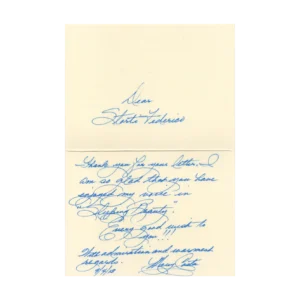 Dear
Thank you for your letter. I
am so glad that you have
enjoyed my work in
"Sleeping Beauty".
Every good wish to
you!!!
With admiration and warmest
regards,
Mary Costa